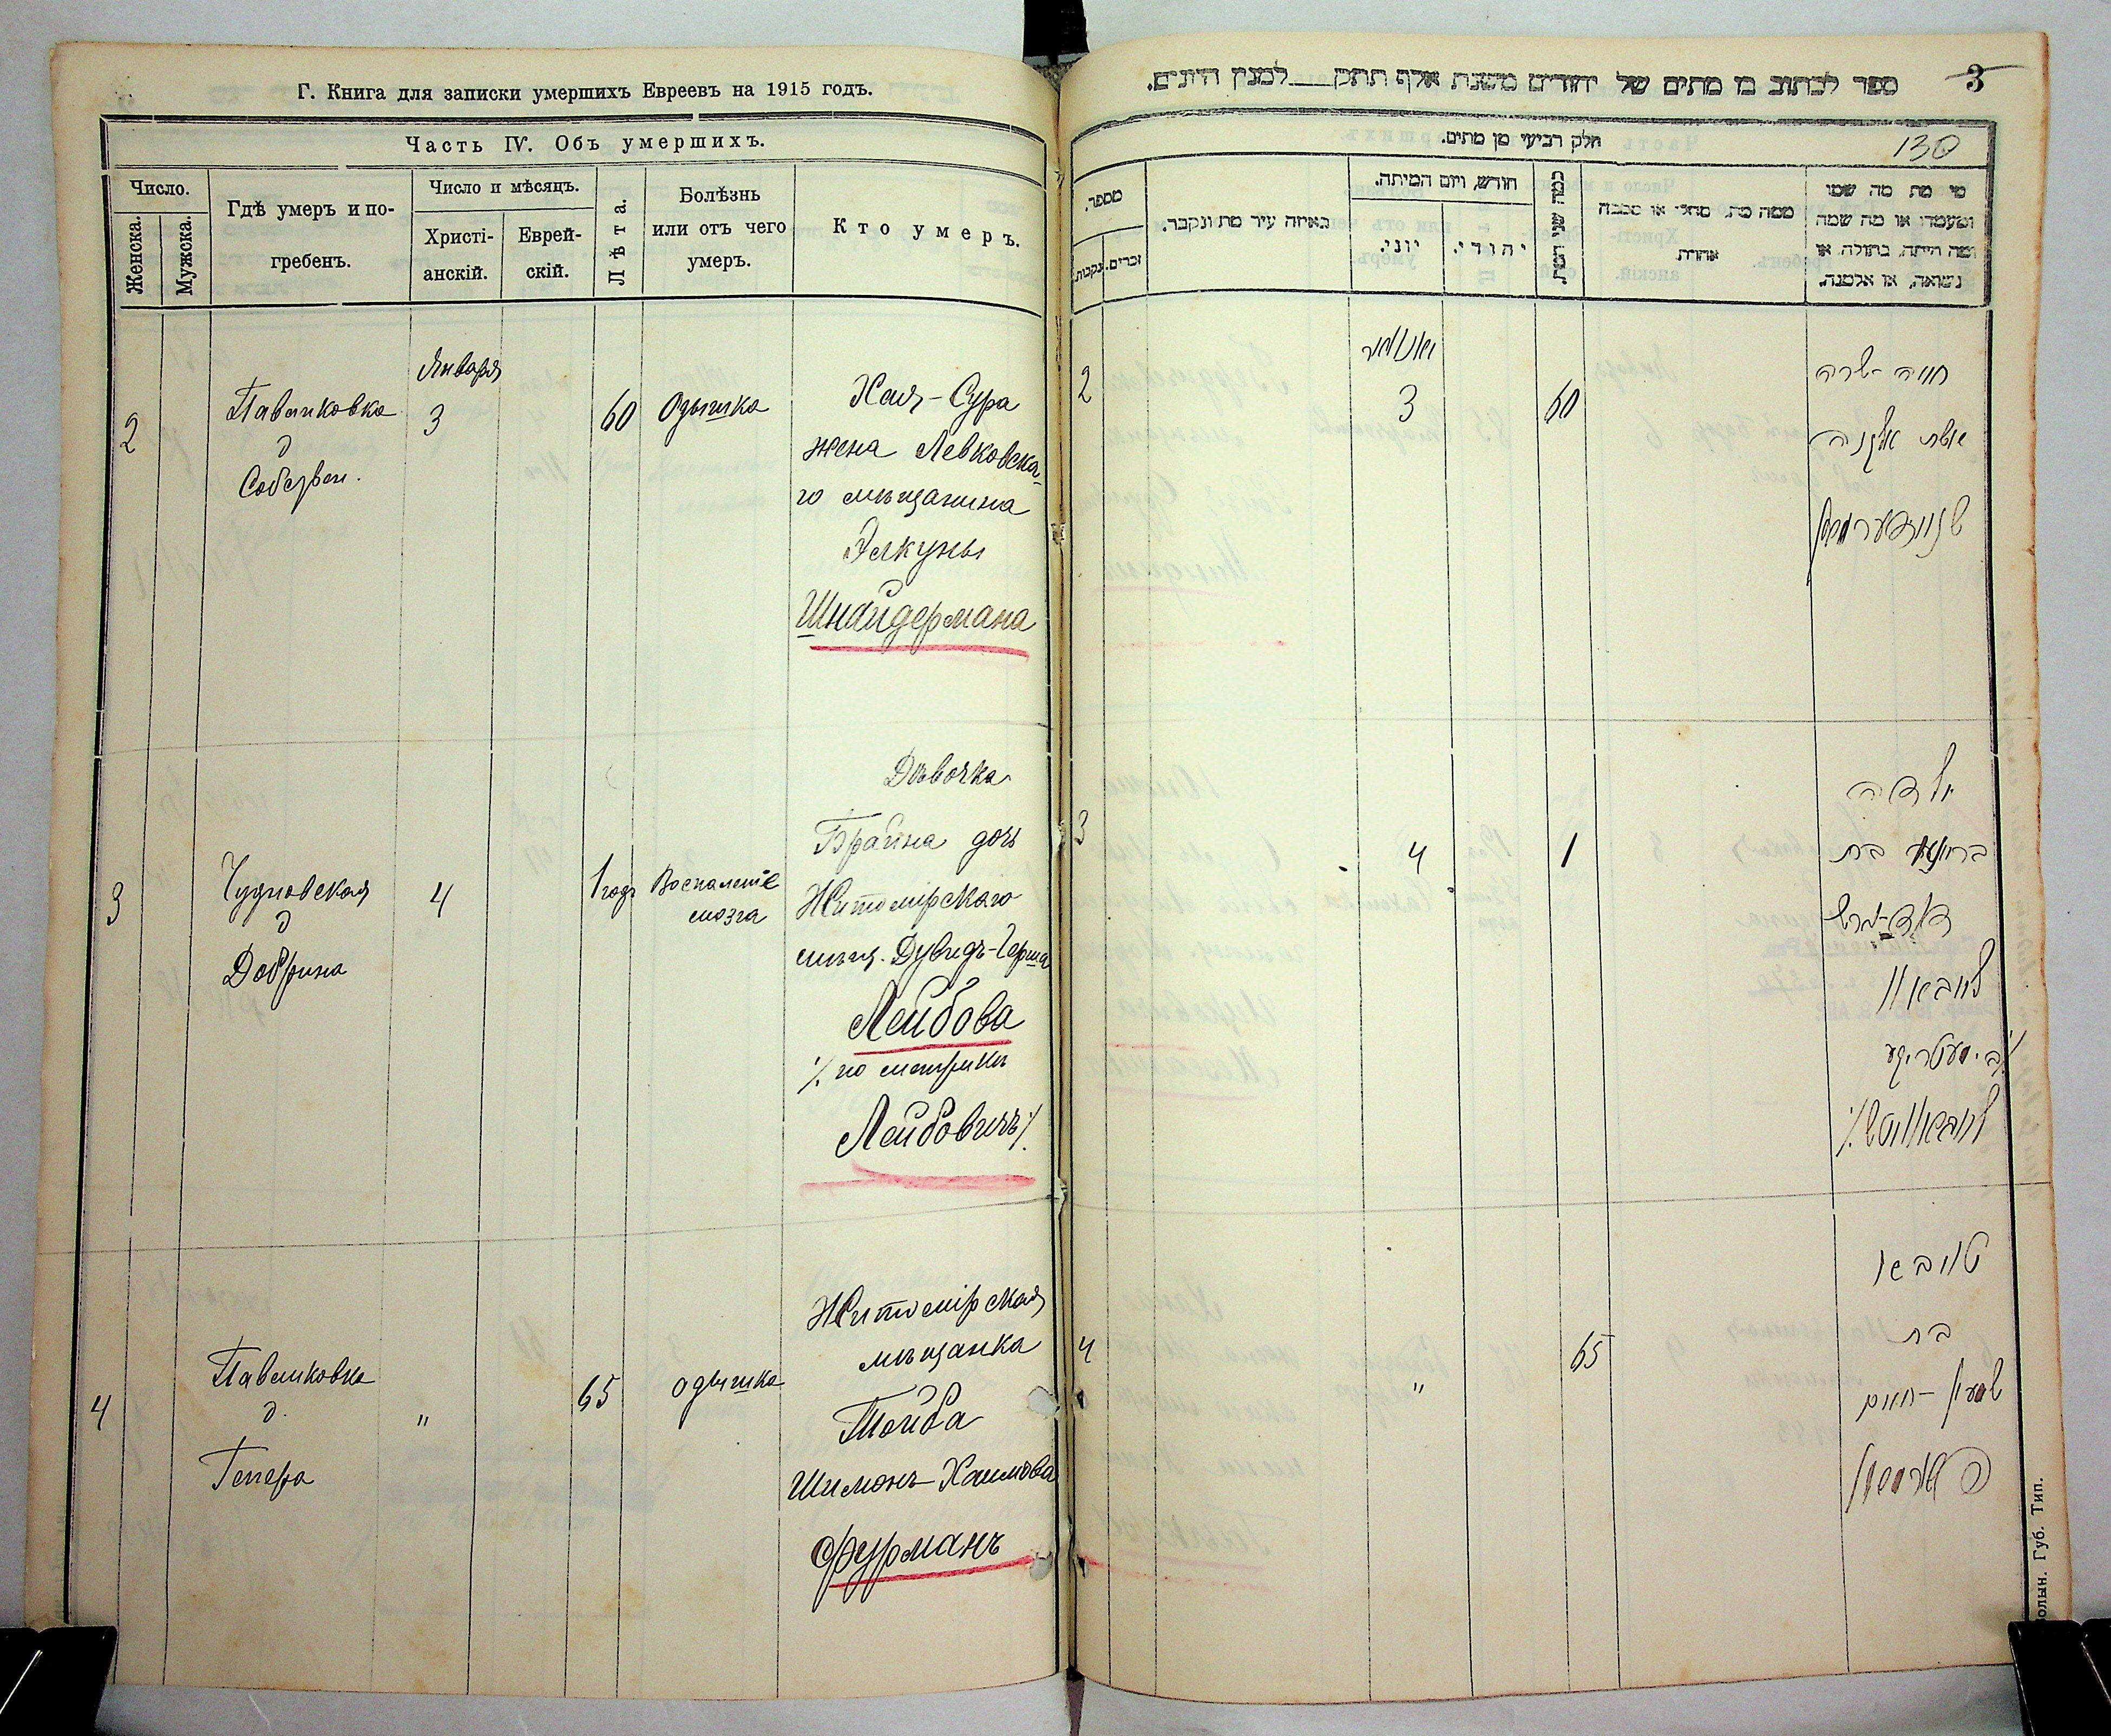 Г. Книга для записки умершихъ Евреевъ на 1915 годъ.
Часть IV. Объ умершихъ.
Число.
Женска.
Мужска.
Гдѣ умеръ и по-
гребенъ.
Число и мѣсяцъ.
Христі-
анскій.
Еврей-
скій.
Лѣта.
Болѣзнь
или отъ чего
умеръ.
Кто умеръ.
2
Павликовка
д
Января
3
60
Одышка
Хая-Сура
жена Левковска-
го мѣщанина
Элкуны
Шнайдермана
3
Чудновская
д
Добрина
4
1 годъ
Воспаленіе
мозга
Дѣвочка
Брайна дочь
Житомірскаго
мѣщ. Дувидъ-Герша
Лейбова
./. по метрикѣ
Лейбовичъ ./.
4
Павликовка
д.
Гепера
"
65
одышка
Житомірская
мѣщанка
Тойба
Шимонъ-Хаимова
Фурманъ
3
ספר לכתוב בו מתים של יהודים משנת אלף תתק למנין היונים.
130
חלק רביעי מן מתים.
מספר.
נקבות.
זכרים.
באיזה עיר מת ונקבר.
חודש, ויום המיתה.
יוני.
יהודי.
כמה שני המת.
ממה מת, מחלי או סבבה
אחרת
מי מת מה שמו
ומעמדו או מה שמה
ומה היתה, בתולה או
נשואה, או אלמנה.
2
יאנואר
3
60
חיה-שרה
אשת אלקנה
שניידערמאן
3
4
1
ילדה
בריינא בת
דוד-הרש
לייבאוו
לייבאוויטש ./.
4
"
65
טויבא
בת
שמעון-חיים
פורמאן
Волын. Губ. Тип.